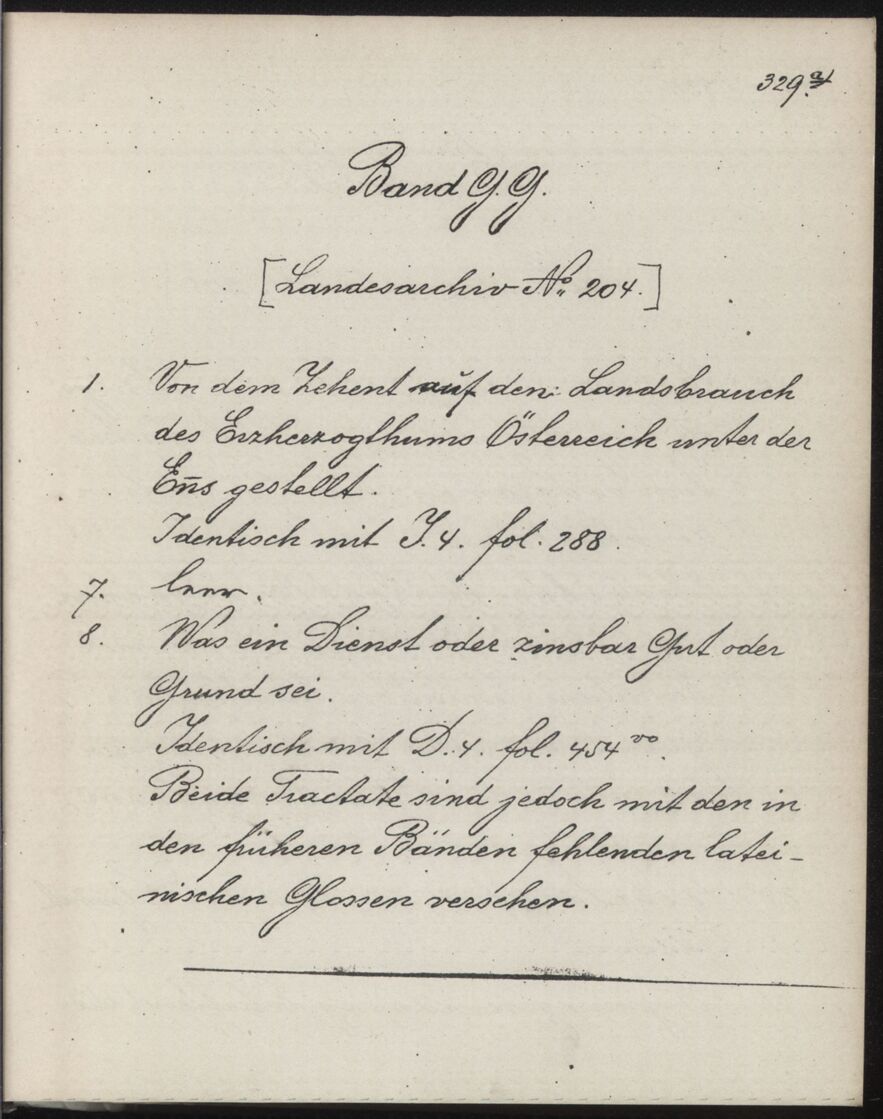 329a/
Band G.G.
[Landesarchiv No. 204.]
1. Von dem Zehent auf den Landsbrauch
des Erzherzogthums Österreich unter der
En̄s gestellt.
Identisch mit J.4. fol. 288.
7. leer.
8. Was ein Dienst oder zinsbar Gut oder
Grund sei.
Identisch mit D.4. fol. 454vo.
Beide Tractate sind jedoch mit den in
den früheren Bänden fehlenden latei-
nischen Glossen versehen.